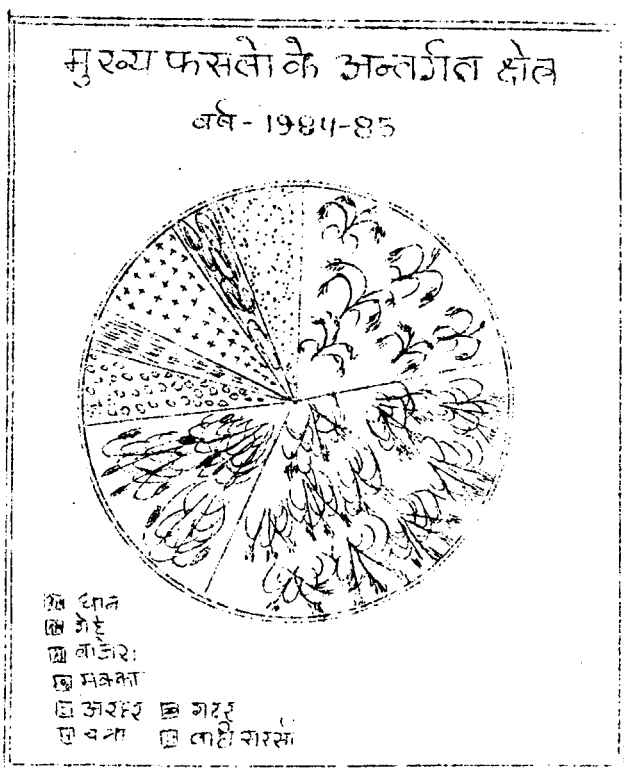 मुख्य फसलो के अन्तर्गत क्षेत्र
वर्ष - 1984-85
धान
गेहूँ
बाजरा
मक्का
अरहर मटर
चना लाही सरसो